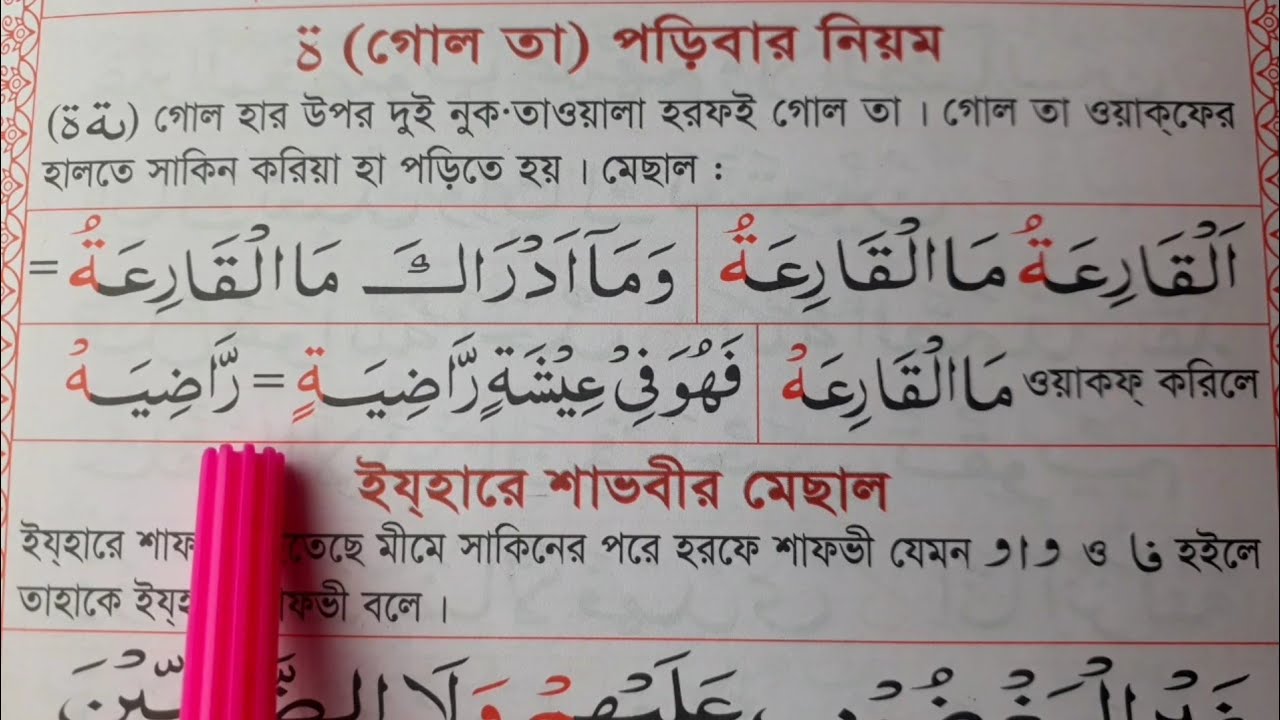 ة (গোল তা) পড়িবার নিয়ম
(ـة ة) গোল হার উপর দুই নুক্‌তাওয়ালা হরফই গোল তা । গোল তা ওয়াক্‌ফের
হালতে সাকিন করিয়া হা পড়িতে হয় । মেছাল :
اَلْقَارِعَةُ مَا الْقَارِعَةُ وَمَآ اَدْرَاكَ مَا الْقَارِعَةُ =
ওয়াকফ্ করিলে مَا الْقَارِعَهْ فَهُوَ فِيْ عِيْشَةٍ رَّاضِيَةٍ = رَّاضِيَهْ
ইয্‌হারে শাভবীর মেছাল
ইয্‌হারে তেছে মীমে সাকিনের পরে হরফে শাফভী যেমন واو ও فا হইলে
তাহাকে ফভী বলে ।
عَلَيْهِمْ وَلَا الضَّآلِّيْنَ